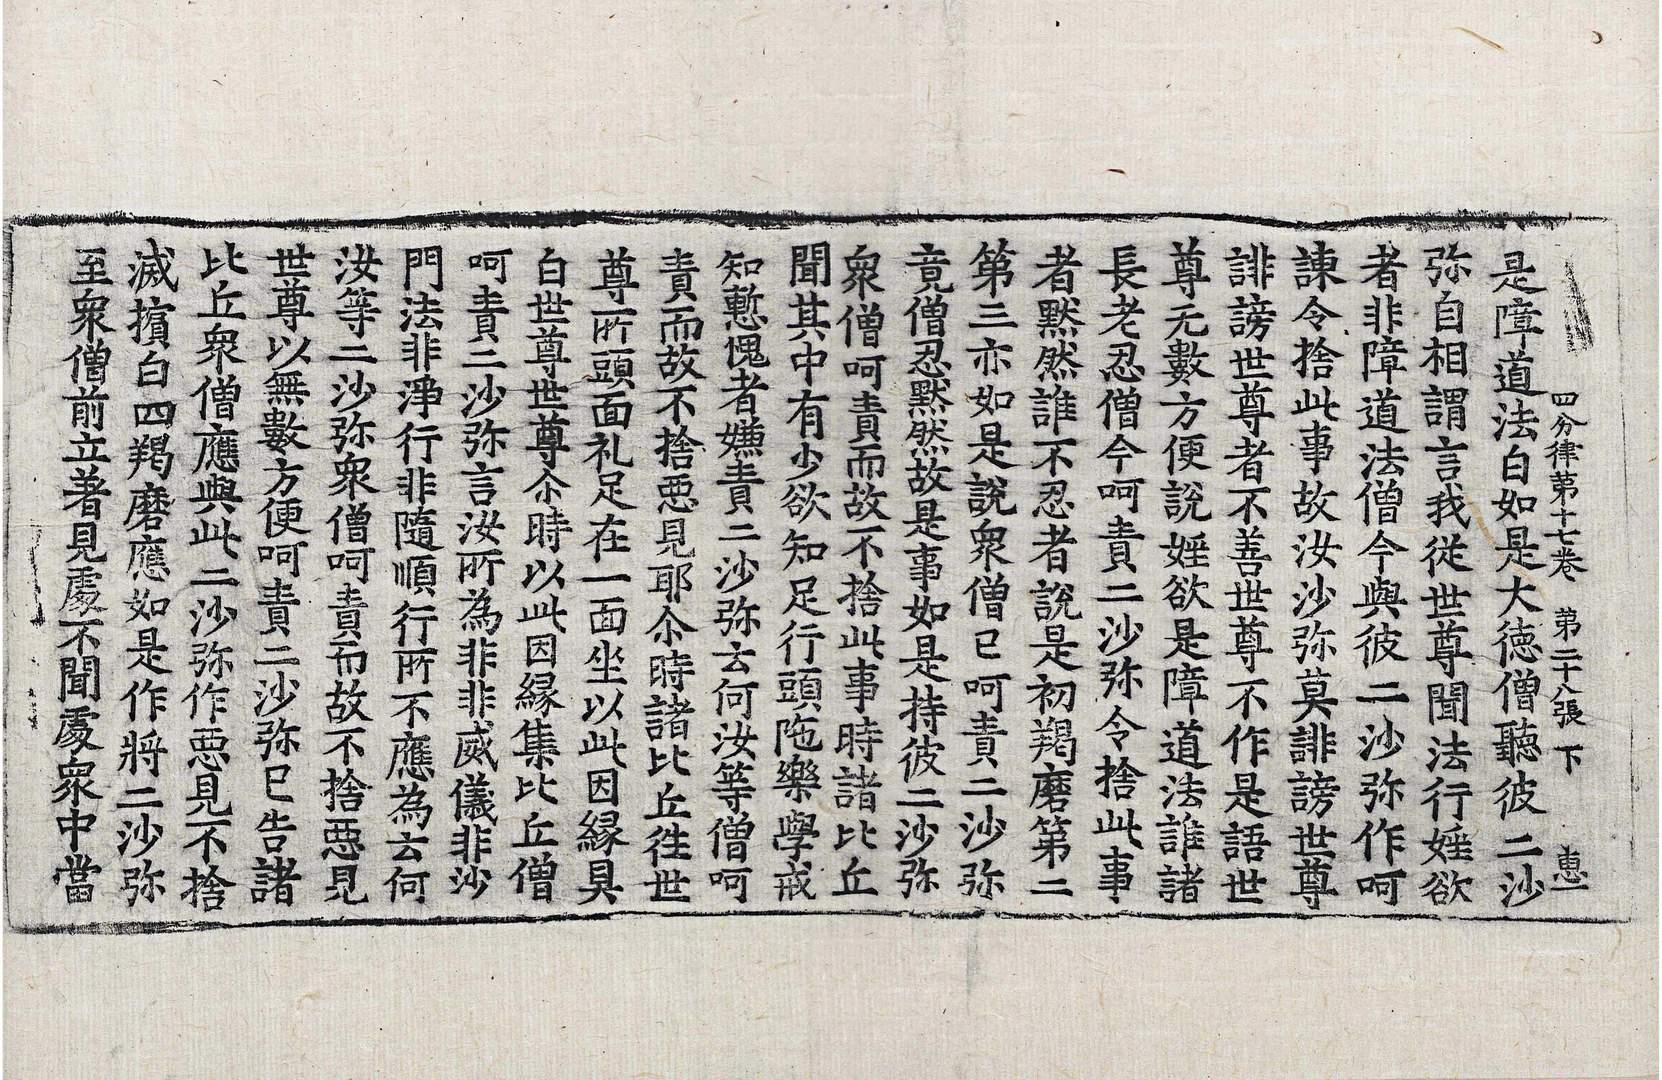 四分律第十七卷　第二十八張　下　惠一
是障道法白如是大德僧聽彼二沙
弥自相謂言我從世尊聞法行婬欲
者非障道法僧今與彼二沙弥作呵
諫令捨此事故汝沙弥莫誹謗世尊
誹謗世尊者不善世尊不作是語世
尊无數方便說婬欲是障道法誰諸
長老忍僧今呵責二沙弥令捨此事
者默然誰不忍者說是初羯磨第二
第三亦如是說衆僧已呵責二沙弥
竟僧忍默然故是事如是持彼二沙弥
衆僧呵責而故不捨此事時諸比丘
聞其中有少欲知足行頭陁樂學戒
知慙愧者嫌責二沙弥云何汝等僧呵
責而故不捨惡見耶尒時諸比丘徃世
尊所頭面礼足在一面坐以此因緣具
白世尊世尊尒時以此因緣集比丘僧
呵責二沙弥言汝所為非非威儀非沙
門法非淨行非隨順行所不應為云何
汝等二沙弥衆僧呵責而故不捨惡見
世尊以無數方便呵責二沙弥已告諸
比丘衆僧應與此二沙弥作惡見不捨
滅擯白四羯磨應如是作將二沙弥
至衆僧前立著見處不聞處衆中當